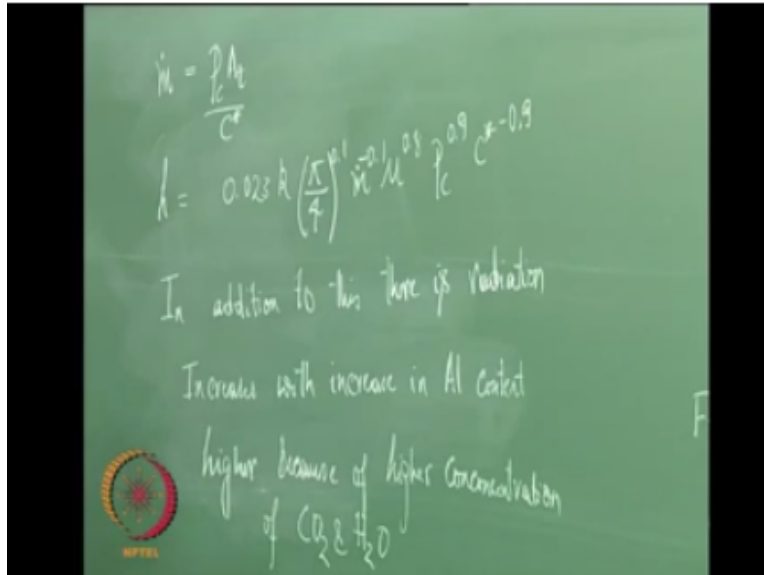 ṁ = PcAt
C*
h = 0.023 k (π/4)^0.1 ṁ^-0.1 μ^0.8 Pc^0.9 C*^-0.9
In addition to this there is radiation
Increases with increase in Al content
F
higher because of higher concentration
of CO2 & H2O
NPTEL